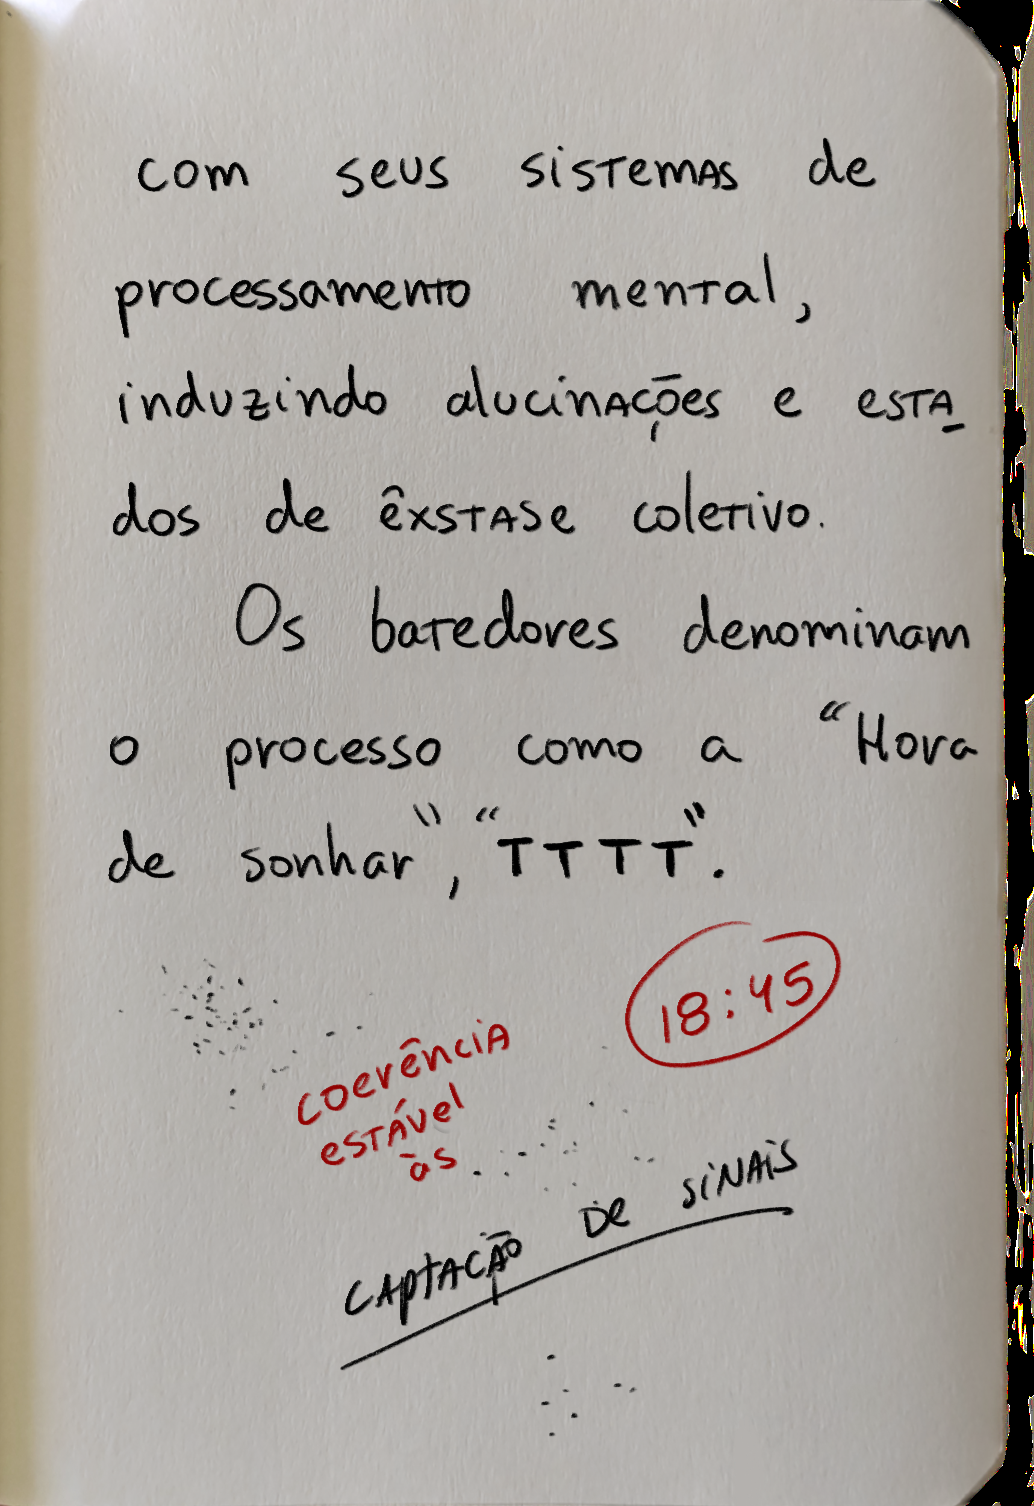 com seus sistemas de
processamento mental,
induzindo alucinações e esta
dos de êxstase coletivo.
Os batedores denominam
o processo como a "Hora
de sonhar", "TTTT".
18:45
coerência
estável
às
captação de sinais